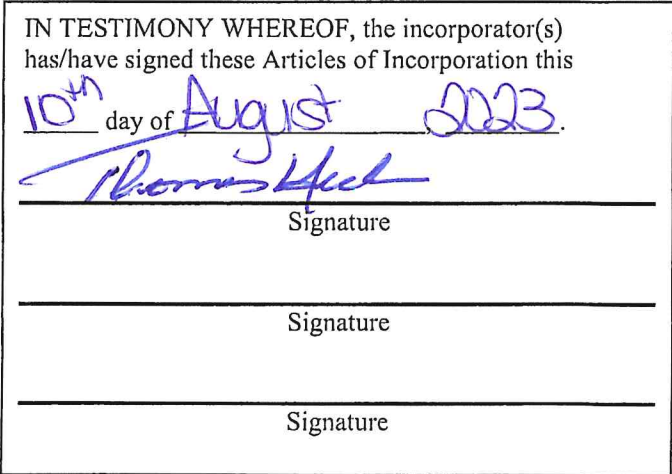 IN TESTIMONY WHEREOF, the incorporator(s)
has/have signed these Articles of Incorporation this
10th day of August, 2023.
Thomas
Signature
Signature
Signature